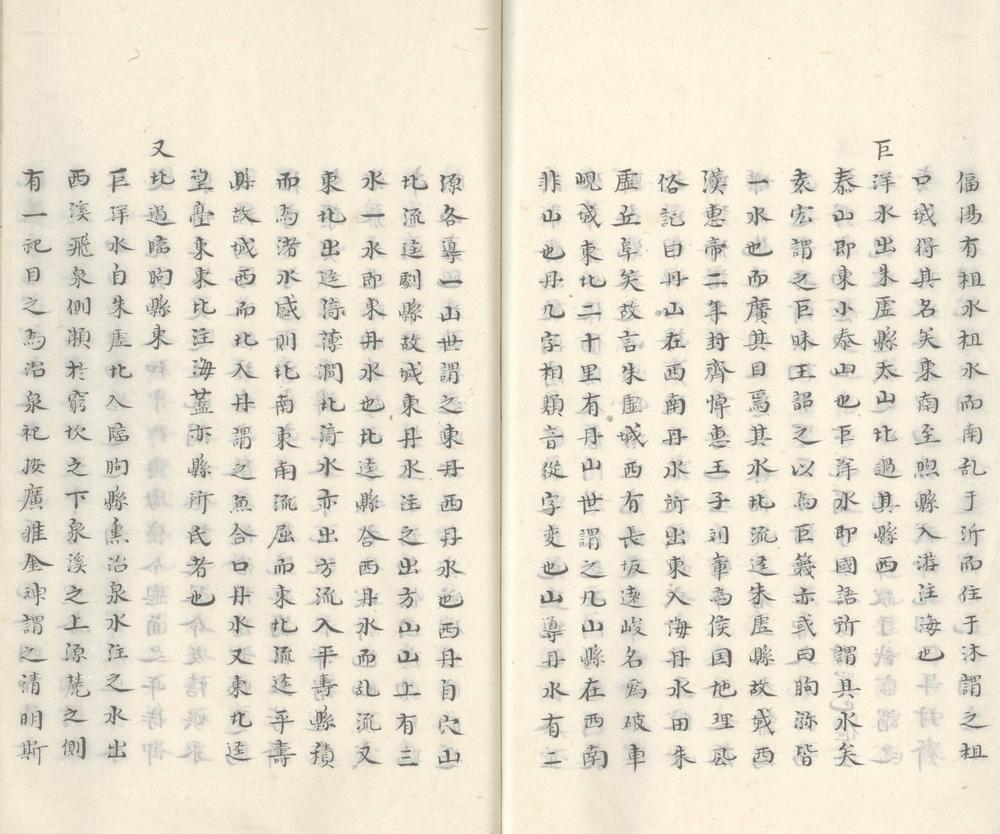 偪陽有柤水柤水而南乱于沂而住于沭謂之柤
口城得其名矣東南至朐縣入游注海也
巨洋水出朱虚縣太山北過其縣西
泰山即東小泰山也巨洋水即國語所謂具水矣
袁宏謂之巨昧王韶之以爲巨蔑亦或曰朐弥皆
一水也而廣其目焉其水北流逕朱虚縣故城西
漢惠帝二年封齊悼惠王子刘章爲侯国地理風
俗記曰丹山在西南丹水所出東入海丹水由朱
虚丘阜矣故言朱虚城西有長坂遠峻名爲破車
峴城東北二十里有丹山世謂之凡山縣在西南
非山也丹凡字相類音從字变也山導丹水有二
源各導一山世謂之東丹西丹水也西丹自凡山
北流逕劇縣故城東丹水注之出方山山上有三
水一水即東丹水也北逕縣合西丹水而乱流又
東北出逕渏薄澗北渏水亦出方流入平壽縣積
而爲渚水盛則北南東南流屈而東北流逕平壽
縣故城西而北入丹謂之魚合口丹水又東北逕
望臺東東北注海蓋亦縣所氏者也
又北過臨朐縣東
巨洋水自朱虚北入臨朐縣熏冶泉水注之水出
西溪飛泉側瀨於窮坎之下泉溪之上源麓之側
有一祀目之爲冶泉祀按廣雅金神謂之清明斯